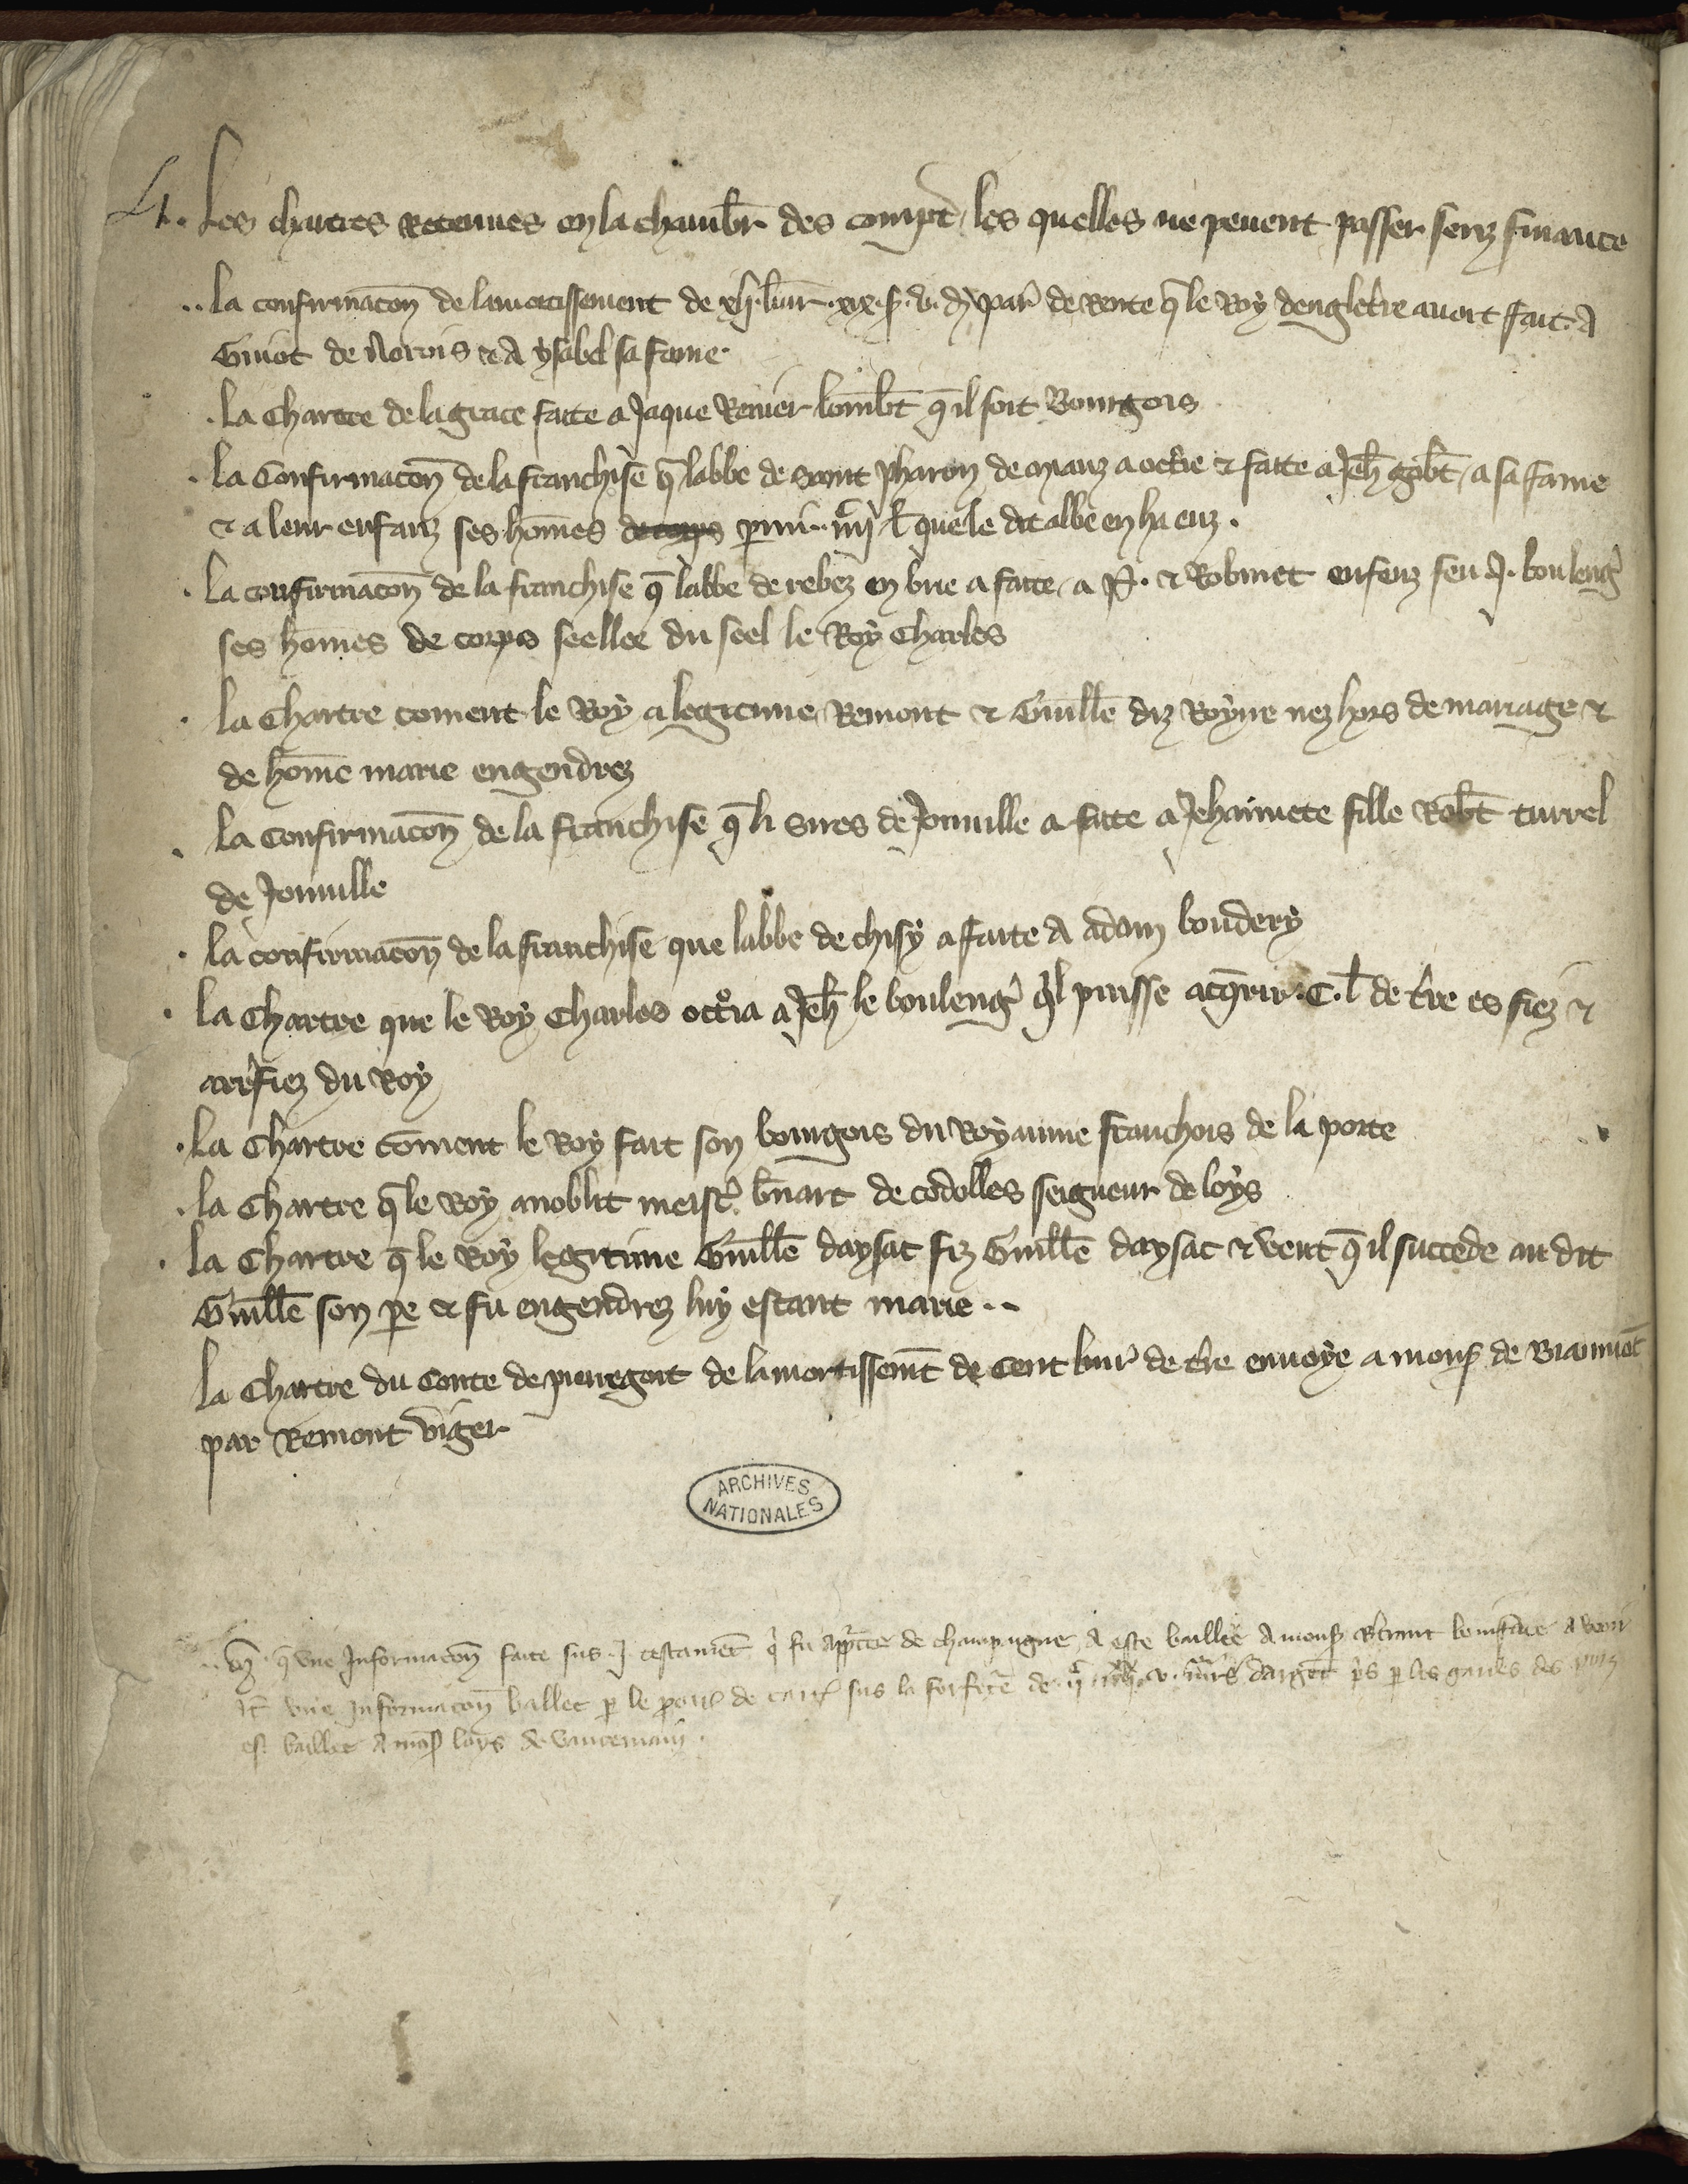 Les chartres Retenues en la chambr des compt les quelles ne pevent passer senz finance
La confirmacon de lamortissement de xlj livr. xix. s. v. d. par de Rente q le Roy dengletre avoit fait A
Guiot de Noiois & A ysabel sa fame
La Chartre de la grace faite a Jaque Renier lombt q il soit Bourgois
La Confirmacon de la franchise q labbe de saint Pharon de Miauz a octie & faite a Jeh gobt a sa fame
& a leur enfanz ses homes de corps pmi l que le dit abbe en ha euz.
La confirmacon de la franchise q labbe de rebez en brie a faite a P. & Robinet enfenz feu J. bouleng
ses homes de corps seellee du seel le Roy Charles
La Chartre coment le Roy a legitime Remont & Guille diz Royne nez hors de mariage &
de home marie engendrez
La Confirmacon de la franchise q li sires de Joinville a faite a Jehannete fille Robt turrel
de Joinville
La confirmacon de la franchise que labbe de chisy a faite A Adam boudery
La Chartre que le Roy Charles octroia a Jeh le bouleng quil puisse acqrir. C. l de tre es fiez &
arrefiez du Roy
La Chartre coment le Roy fait son bourgois du Royaume franchois de la porte
La Chartre q le Roy anoblit meist bnart de codolles seigneur de loys
La Chartre q le Roy legitime Guille daysac fiz Guille daysac & veut q il succede au dit
Guille son pe & fu engendrez luy estant marie
La Chartre du Conte de pierregort de lamortissemt de cent livr de tre envoye a mons de
par Remont viger
ARCHIVES
NATIONALES
q une Informacon faite sus. j. testamet q fu apptee de champaigne A este baillee A mons
It une Informacon ballee p le de sus la forfete de marcs dargent ps p les gardes des
est baillee A mos loys de vaucemain.